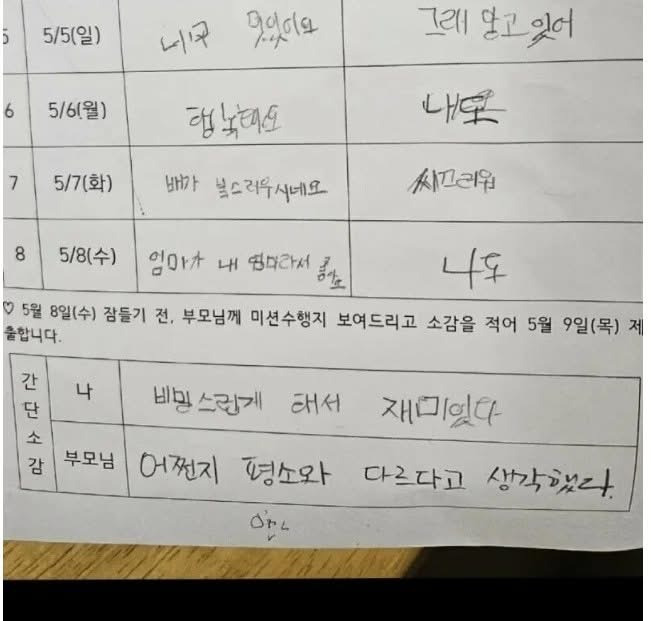 5 5/5(일) 멋있어요 그래 알고 있어
6 5/6(월) 행복해요 내모
7 5/7(화) 배가 볼스러우시네요 씨끄러워
8 5/8(수) 엄마가 내 엄마라서 좋아요 나도
♡ 5월 8일(수) 잠들기 전, 부모님께 미션수행지 보여드리고 소감을 적어 5월 9일(목) 제
출합니다.
간단소감
나 비밀스럽게 해서 재미있다
부모님 어쩐지 평소와 다르다고 생각했다.